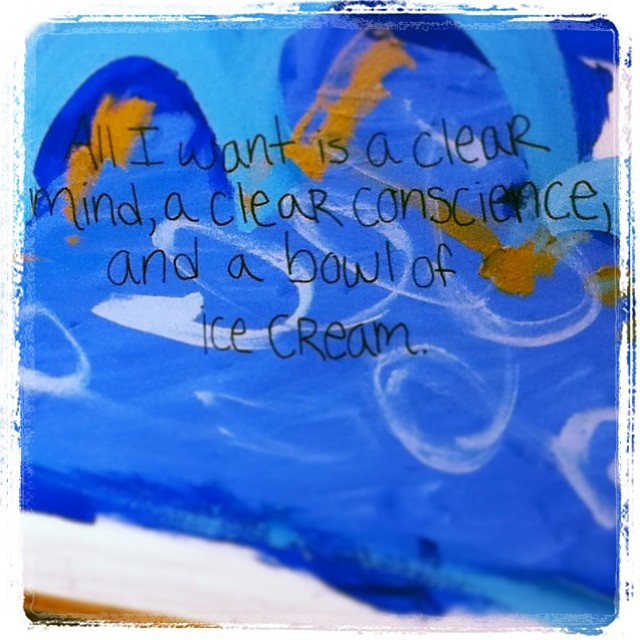 All I want is a clear
mind, a clear conscience,
and a bowl of
ice cream.